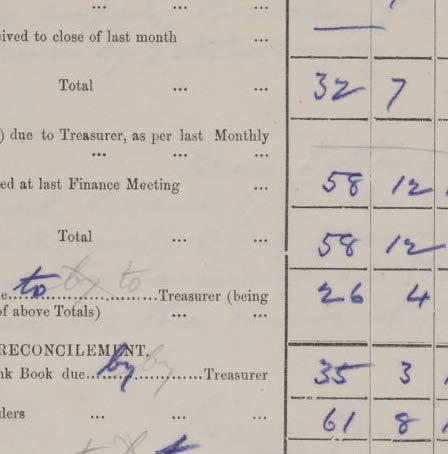 ... ... ...
eived to close of last month ... —
Total ... ... 32 7
) due to Treasurer, as per last Monthly
... ... ...
ed at last Finance Meeting ... 58 12
Total ... ... 58 12
to by to
e..................Treasurer (being 26 4
of above Totals) ... ...
RECONCILEMENT.
nk Book due by by Treasurer 35 3
ders ... ... ... 61 8